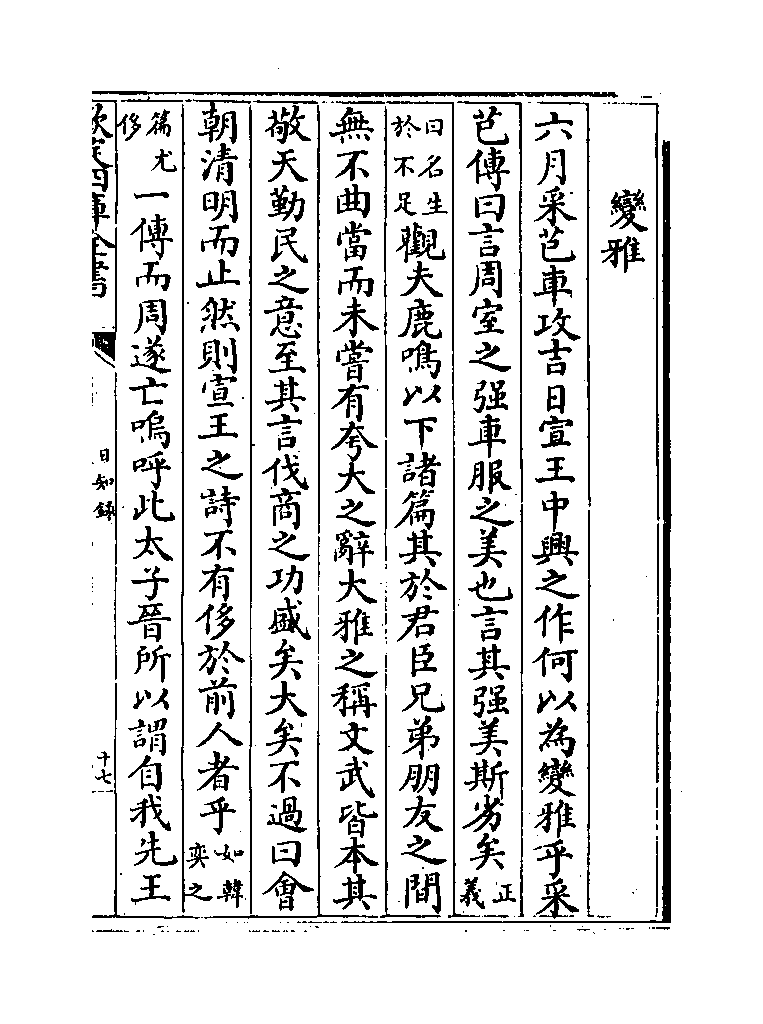 變雅
六月采芑車攻吉日宣王中興之作何以為變雅乎采
芑傳曰言周室之强車服之美也言其强美斯劣矣正義
曰名生於不足觀夫鹿鳴以下諸篇其於君臣兄弟朋友之間
無不曲當而未嘗有夸大之辭大雅之稱文武皆本其
敬天勤民之意至其言伐商之功盛矣大矣不過曰會
朝清明而止然則宣王之詩不有侈於前人者乎如韓奕之
篇尤侈一傳而周遂亡嗚呼此太子晉所以謂自我先王
欽定四庫全書
日知錄
十七